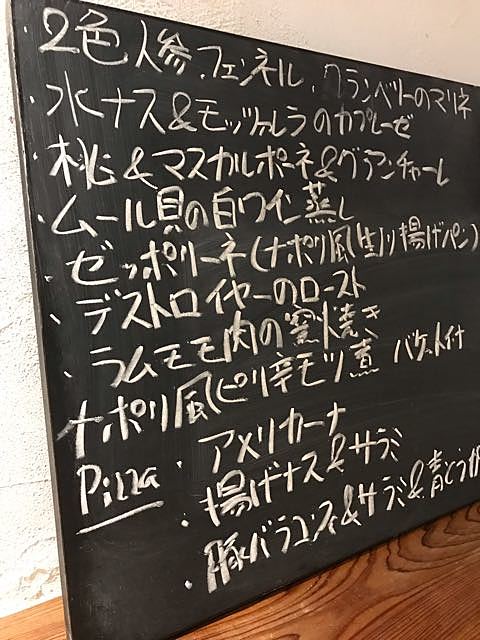 2色人参、フェンネル、クランベリーのマリネ
・水ナス&モッツァレラのカプレーゼ
・桃&マスカルポーネ&グアンチャーレ
・ムール貝の白ワイン蒸し
・ゼッポリーネ(ナポリ風生ノリ揚げパン)
・デストロイヤーのロースト
・ラムモモ肉の窯焼き
ナポリ風ピリ辛モツ煮 バゲット付
Pizza ・アメリカーナ
・揚げナス&サラミ
・豚バラコンフィ&サラミ&青とうが